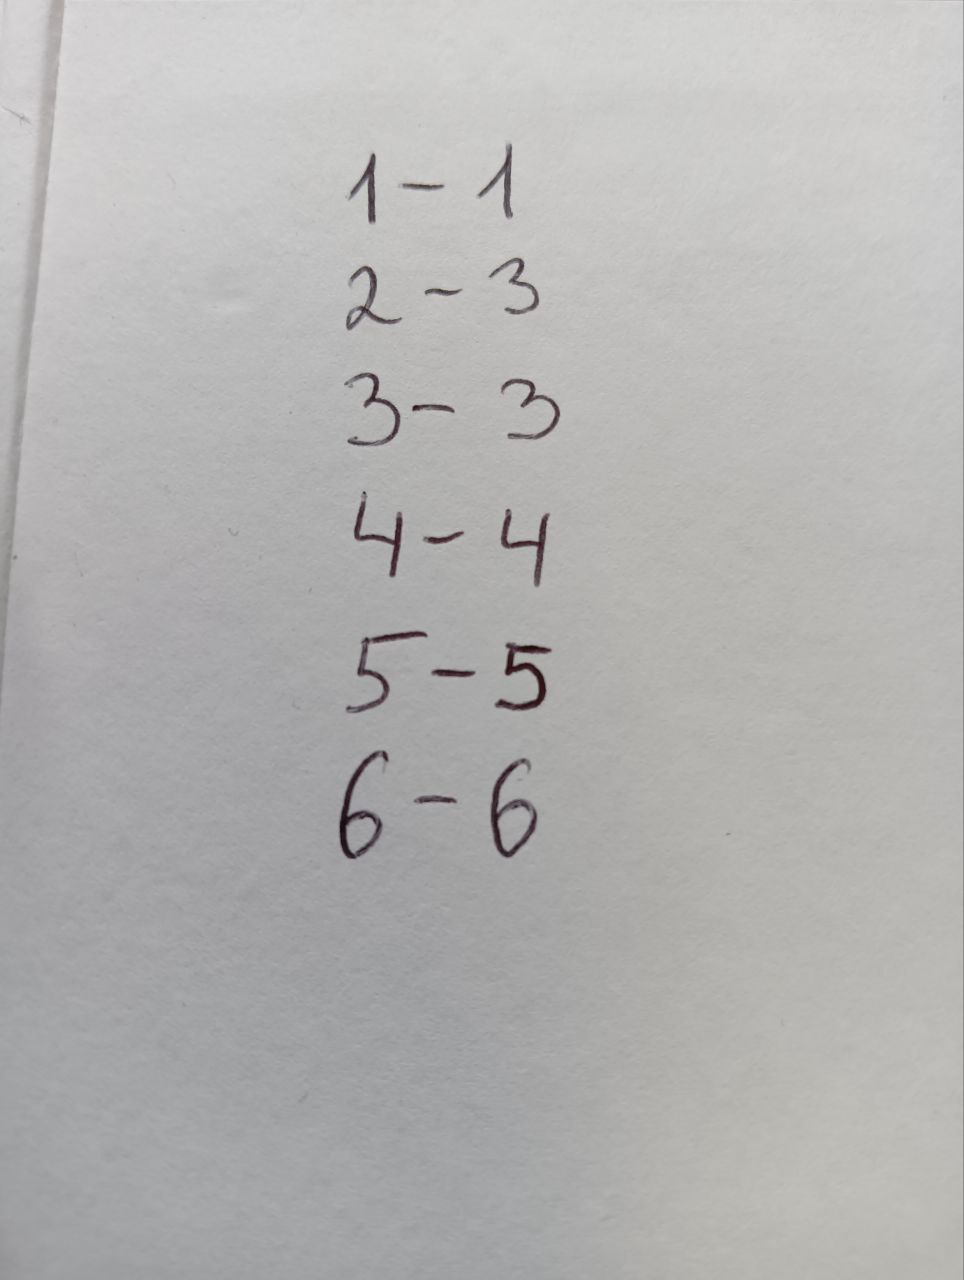 1 - 1
2 - 3
3 - 3
4 - 4
5 - 5
6 - 6